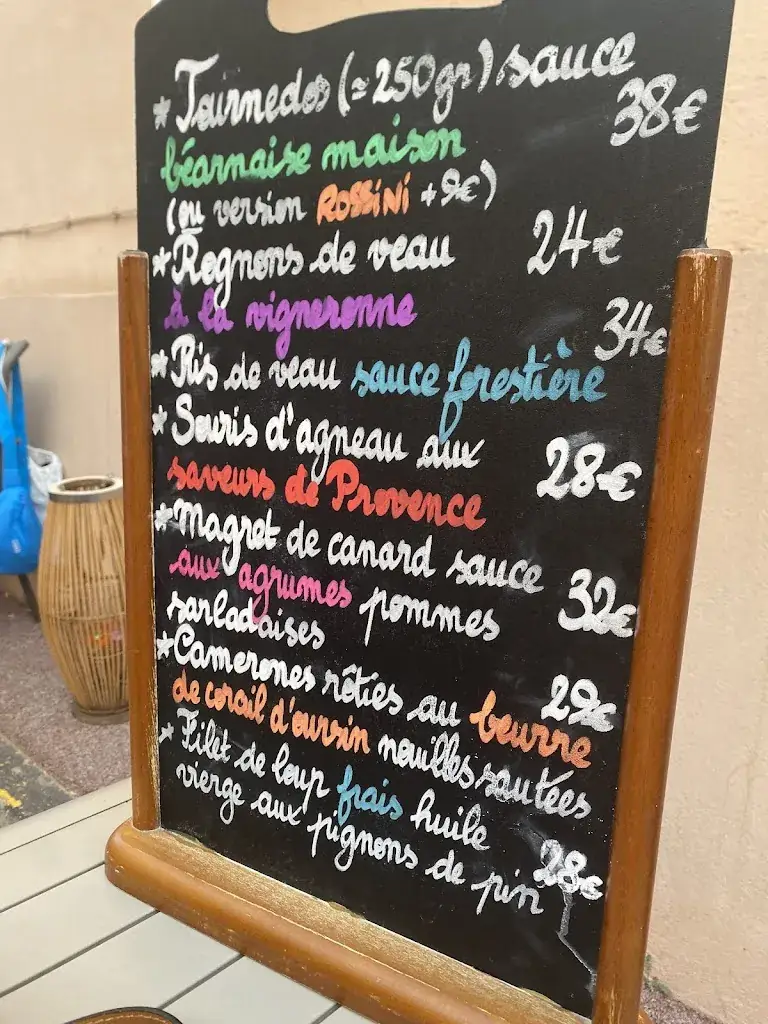 * Tournedos (≃250gr) sauce 38€
béarnaise maison
(ou version ROSSINI +9€)
* Rognons de veau 24€
à la vigneronne
34€
* Ris de veau sauce forestière
* Souris d'agneau aux 28€
saveurs de Provence
* Magret de canard sauce
aux agrumes pommes 32€
sarladaises
* Camerones rôties au beurre 29€
de corail d'oursin nouilles sautées
* Filet de loup frais huile
vierge aux pignons de pin 28€